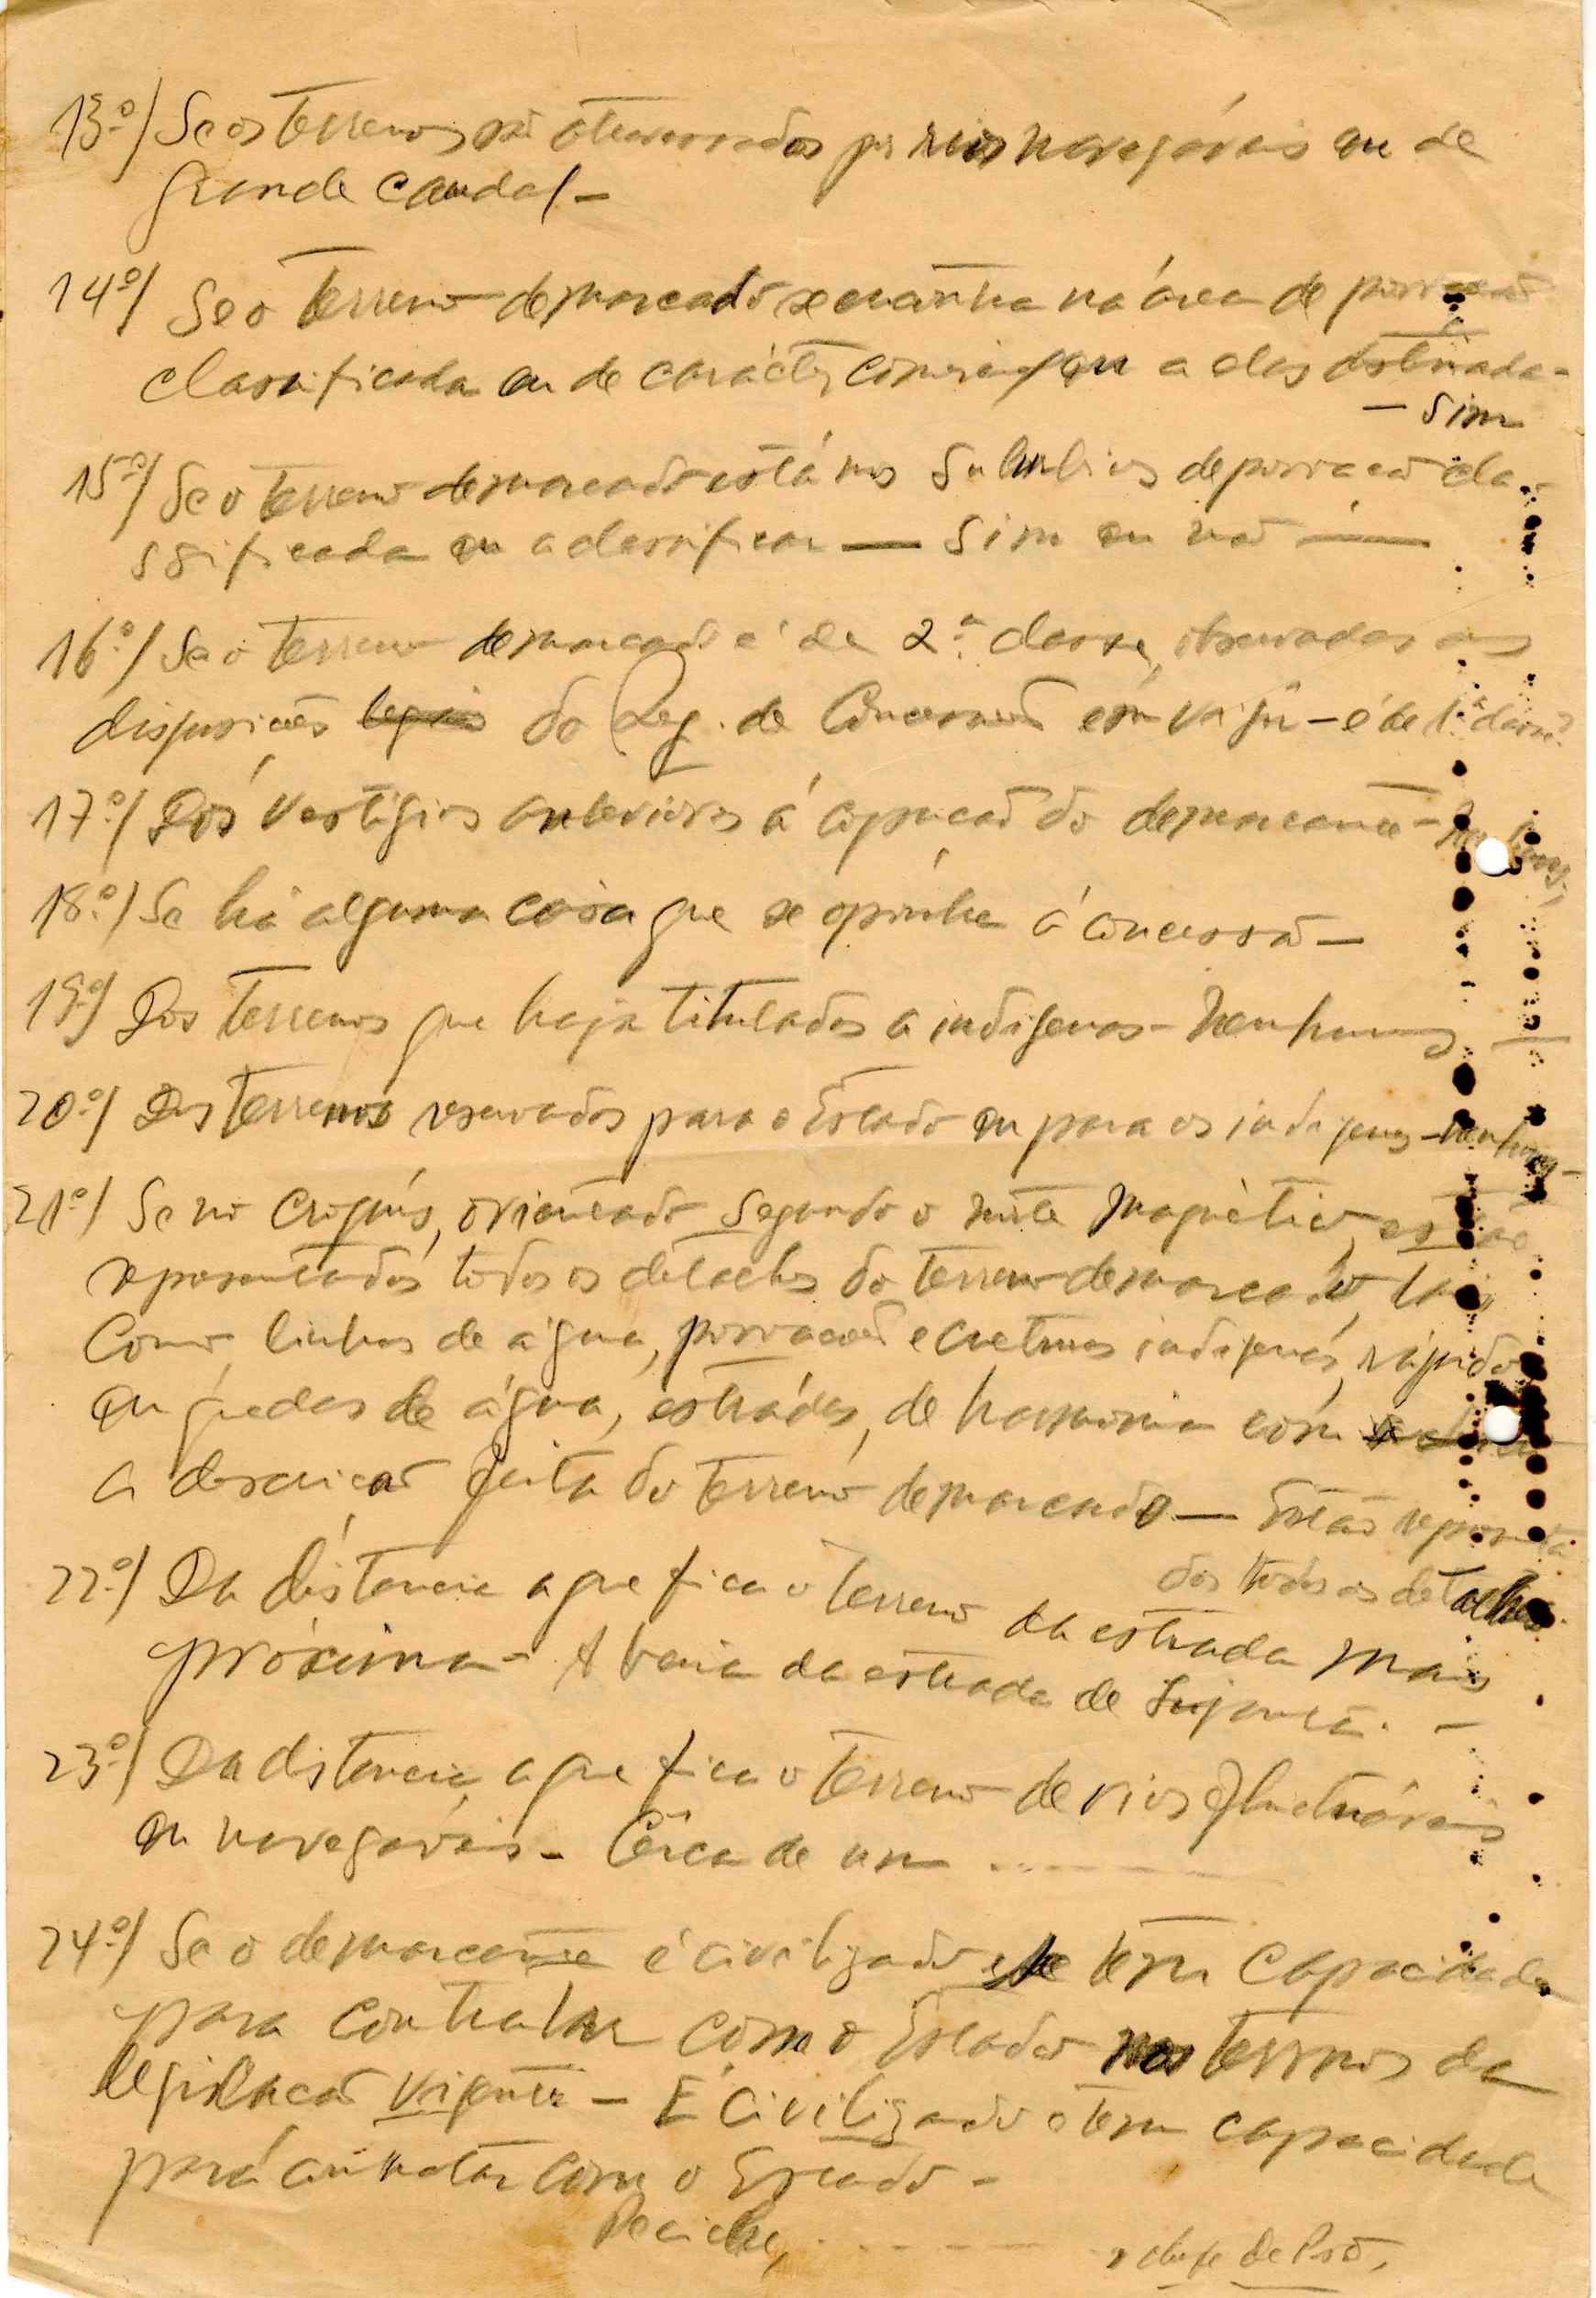 13.º/ Se os terrenos são atravessados por rios navegáveis ou de
grande caudal –
14.º/ Se o terreno demarcado se encontra na área de povoação
classificada ou de carácter comercial ou a elas destinada –
– Sim
15.º/ Se o terreno demarcado está nos subúrbios de povoação cla-
ssificada ou a classificar — Sim ou não —
16.º/ Se o terreno demarcado é de 2.ª classe, observadas as
disposições legais do Reg. de Concessões em vigôr – é de 1.ª classe
17.º/ Dos vestígios anteriores á ocupação do demarcante –
18.º/ Se há alguma coisa que se oponha á concessão –
19.º/ Dos terrenos que haja titulados a indígenas – Nenhuns —
20.º/ Dos terrenos reservados para o Estado ou para os indígenas – nenhuns –
21.º/ Se no croquis, orientado segundo o norte magnético, estão
representados todos os detalhes do terreno demarcado, tais
como linhas de água, povoações e culturas indígenas, rápidos
ou quedas de água, estradas, de harmonia com
a descrição feita do terreno demarcado — Estão representa
dos todos os detalhes.
22.º/ Da distancia a que fica o terreno da estrada mais
próxima – Á beira da estrada de
23.º/ Da distancia a que fica o terreno de rios fluctuáveis
ou navegáveis – Cêrca de um ........
24.º/ Se o demarcante é civilizado e se tem capacidade
para contratar com o Estado nos termos da
legislação vigente – É civilizado e tem capacidade
para contratar com o Estado –
........ o chefe de Pôsto,